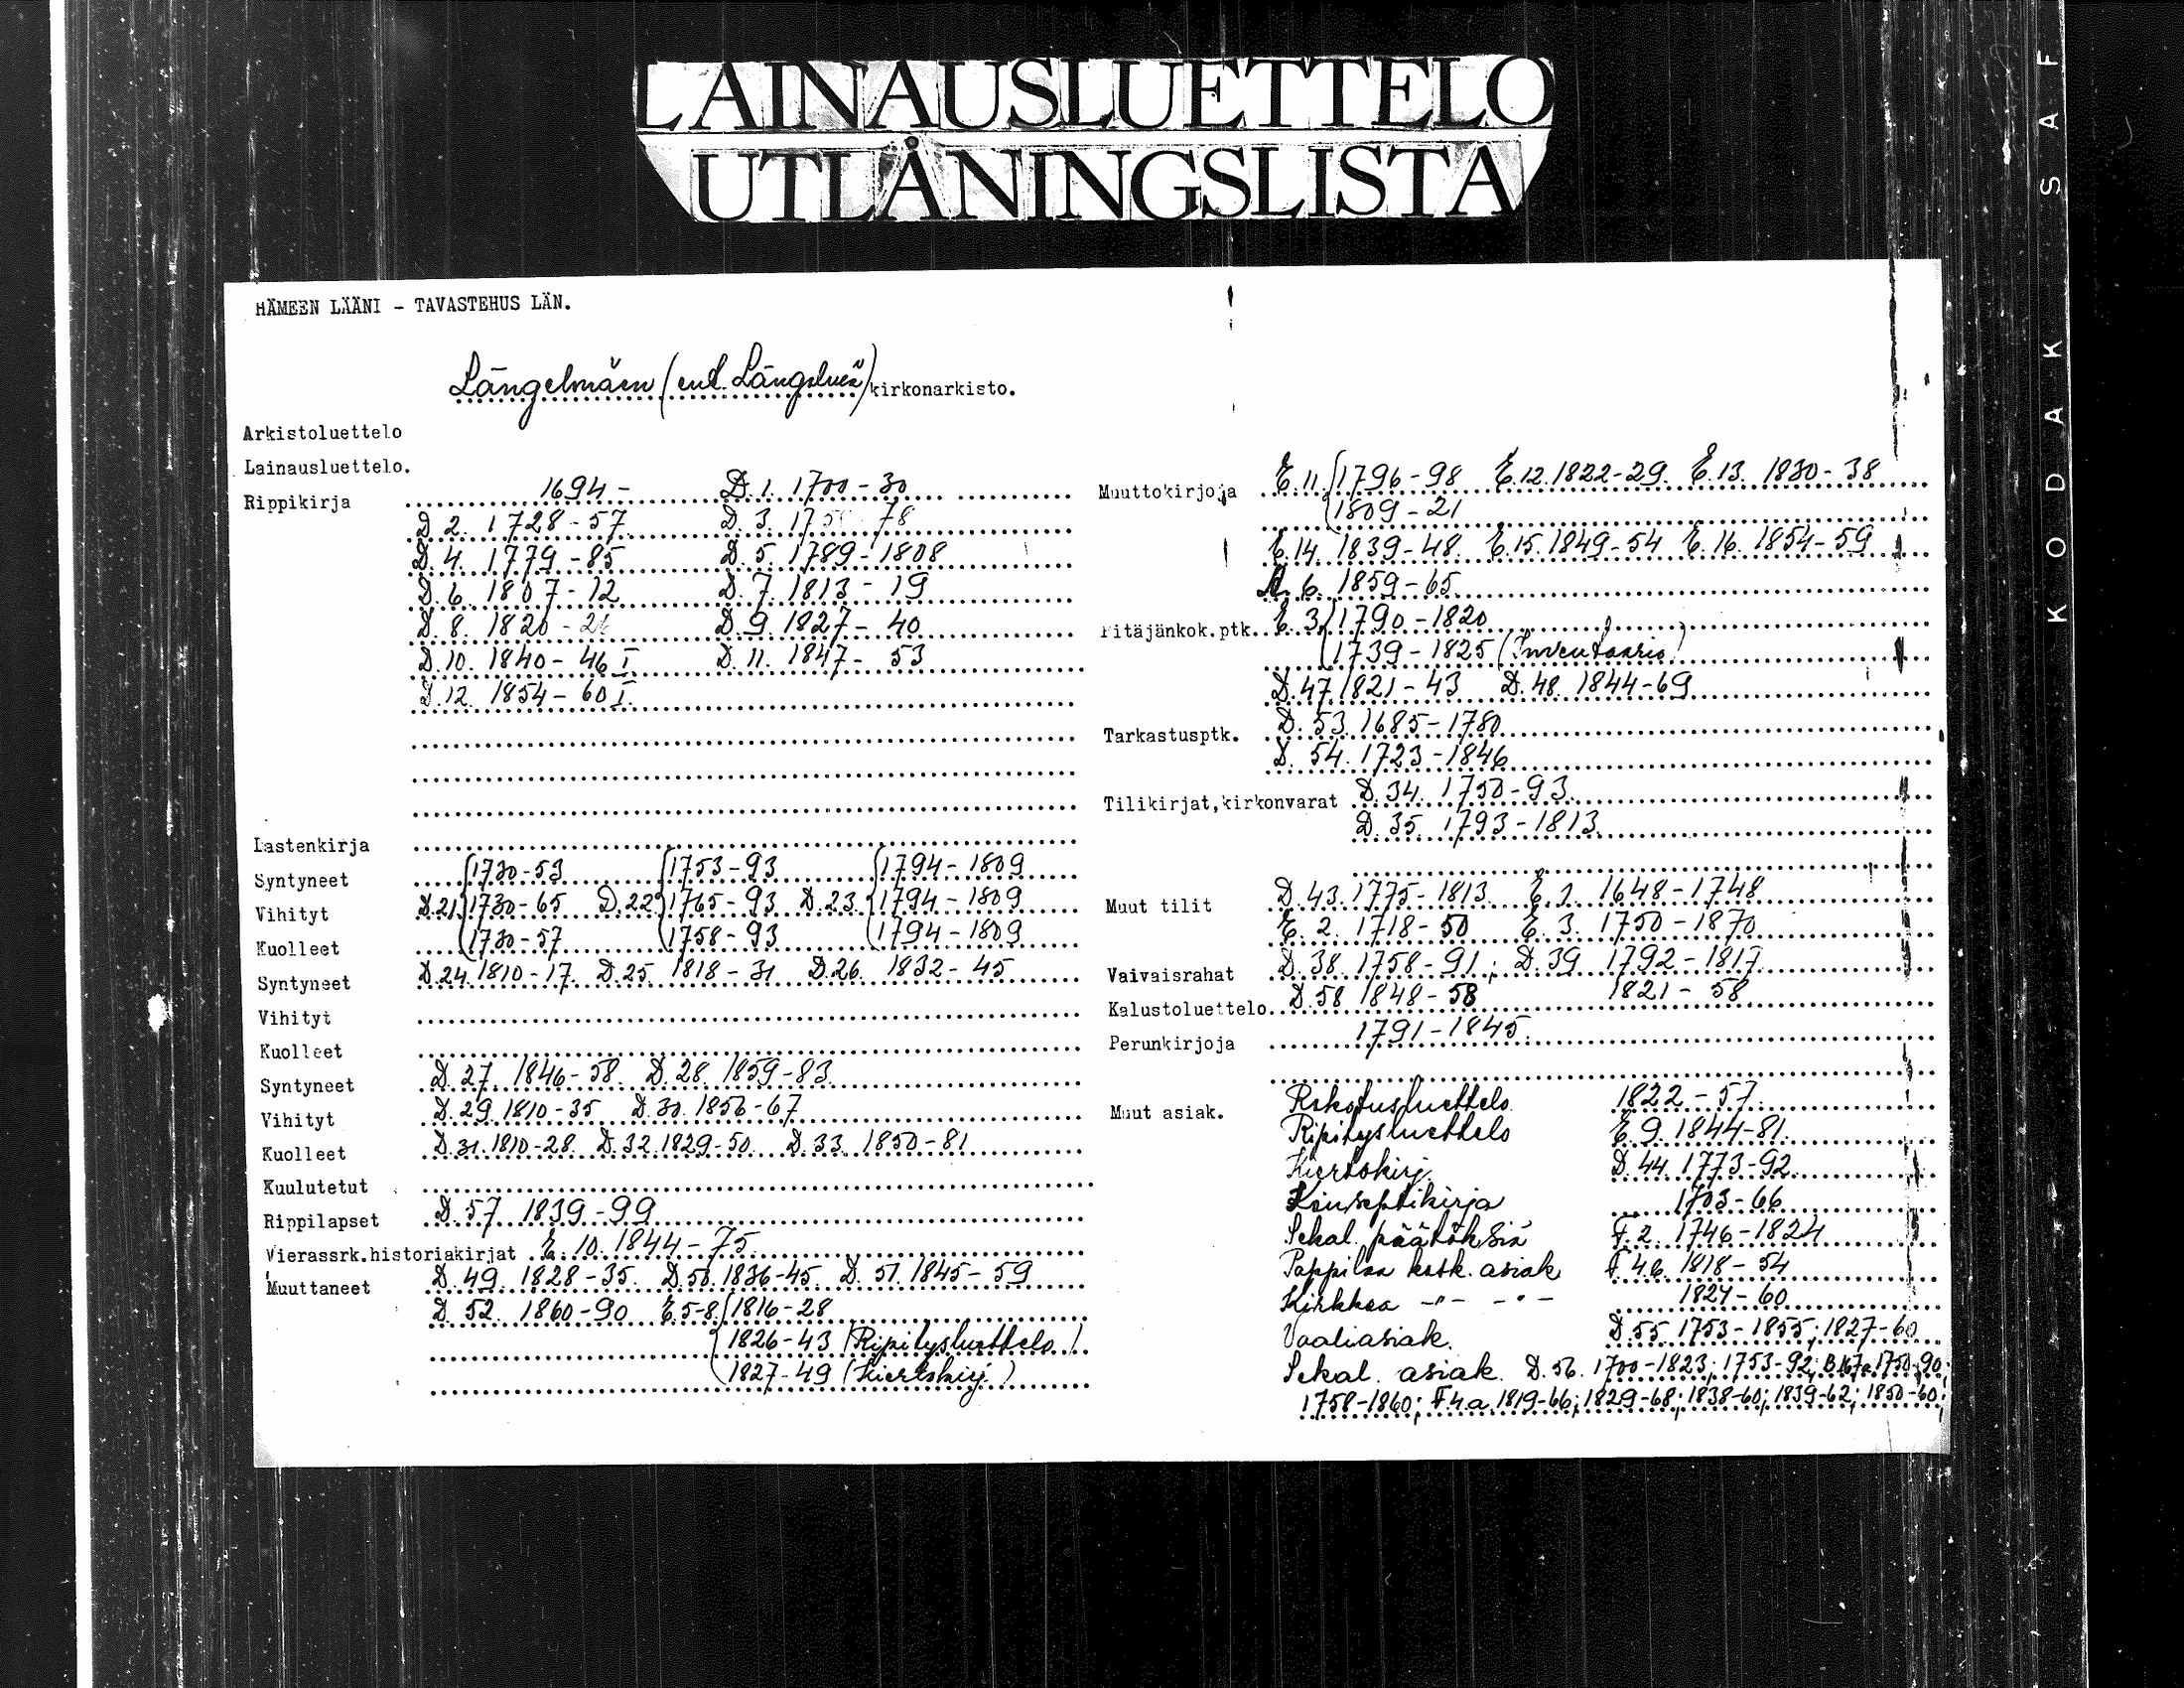 LAINAUSLUETTELO
UTLÅNINGSLISTA
HÄMEEN LÄÄNI - TAVASTEHUS LÄN.
Längelmäen (ent. Längelmä) kirkonarkisto.
Arkistoluettelo
Lainausluettelo.
Rippikirja 1694- D.1. 1700-30
D 2. 1728-57 D. 3. 1758-78
D. 4. 1779-85 D. 5. 1789-1808
D. 6. 1807-12 D. 7. 1813-19
D. 8. 1820-26 D. 9. 1827-40
D. 10. 1840-46 I D. 11. 1847-53
D. 12. 1854-60 I
Lastenkirja
Syntyneet 1730-53 1753-93 1794-1809
Vihityt D.21 1730-65 D.22 1765-93 D.23 1794-1809
Kuolleet 1730-57 1758-93 1794-1809
Syntyneet D.24. 1810-17. D.25. 1818-31 D.26. 1832-45
Vihityt
Kuolleet
Syntyneet D.27. 1846-58. D.28. 1859-83
Vihityt D.29. 1810-35 D.30. 1856-67
Kuolleet D.31. 1810-28. D.32. 1829-50. D.33. 1850-81
Kuulutetut
Rippilapset D.57 1839-99
Vierassrk.historiakirjat E.10. 1844-75
Muuttaneet D.49. 1828-35. D.50. 1836-45. D.51. 1845-59
D.52. 1860-90 E.5-8. 1816-28
1826-43 (Ripitysluettelo)
1827-49 (Kiertokirj.)
Muuttokirjoja E.11. 1796-98 E.12. 1822-29. E.13. 1830-38
1809-21
E.14. 1839-48. E.15. 1849-54 E.16. 1854-59
A. 6. 1859-65
Pitäjänkok.ptk. E. 3. 1790-1820
1739-1825 (Inventaario)
D.47. 1821-43 D.48. 1844-69
Tarkastusptk. D. 53. 1685-1780
D. 54. 1723-1846
Tilikirjat,kirkonvarat D.34. 1750-93
D.35. 1793-1813
Muut tilit D.43. 1775-1813. E.1. 1648-1748
E. 2. 1718-50 E. 3. 1750-1870
Vaivaisrahat D.38. 1758-91; D.39. 1792-1817
Kalustoluettelo. D.58 1848-58 1821-58
Perunkirjoja 1791-1845
Muut asiak. Rokotusluettelo 1822-57
Ripitysluettelo E.9. 1844-81
Kiertokirj. D.44. 1773-92
Konseptikirja 1703-66
Sekal. päätöksiä F.2. 1746-1824
Pappilaa kosk. asiak. F.4b. 1818-54
Kirkkoa -"- -"- 1824-60
Vaaliasiak. D.55. 1753-1855; 1827-60
Sekal. asiak. D.56. 1700-1823; 1753-92; B 167a 1750-90;
1758-1860; F.4.a. 1819-66; 1829-68; 1838-60; 1839-62; 1850-60;
KODAK SAF